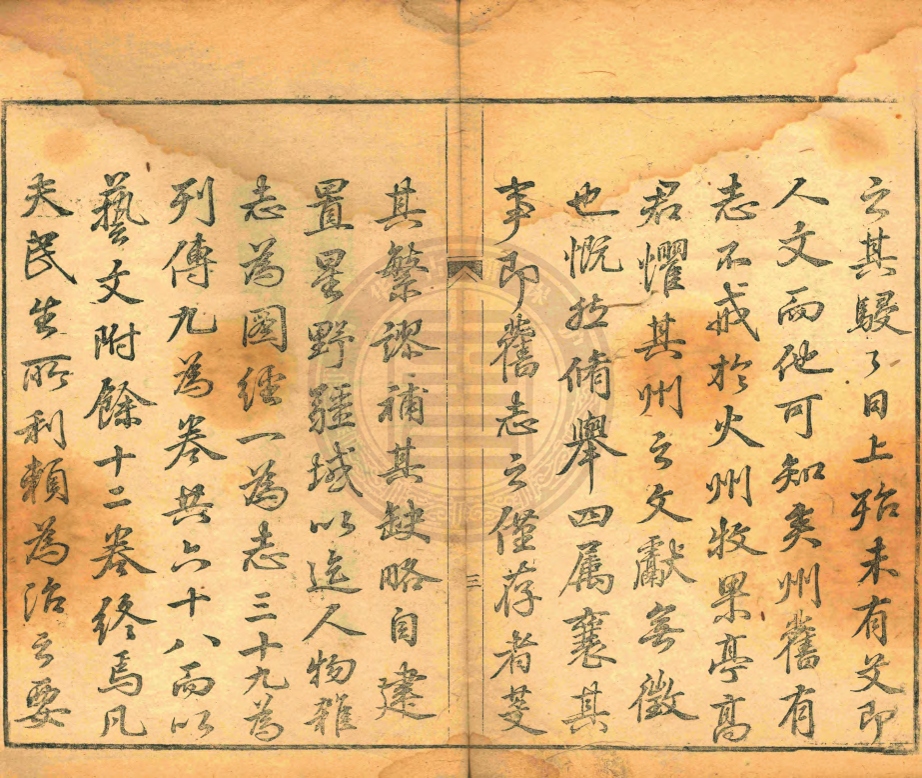 之其駸々日上殆未有艾即
人文而他可知矣州舊有
志不戒於火州牧果亭高
君懼其州之文獻無徵
也慨然脩舉四屬襄其
事即舊志之僅存者芟
三
其繁謬補其缺略自建
置星野疆域以迄人物雜
志為圖經一為志三十九為
列傳九為卷共六十八而以
藝文附餘十二卷終焉凡
夫民生所利賴為治之要